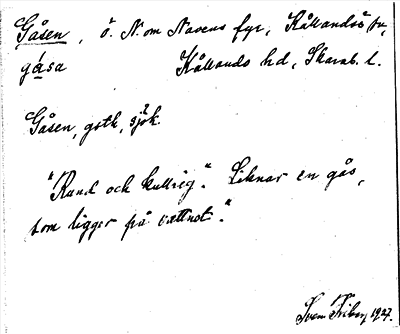 Gåsen, ö. N. om Navens fyr, Kållandsö sn,
gåsa Kållands hd, Skarab. l.
Gåsen, gstk, sjök.
"Rund och kullrig". Liknar en gås,
som ligger på vattnet."
Sven Friberg 1927.